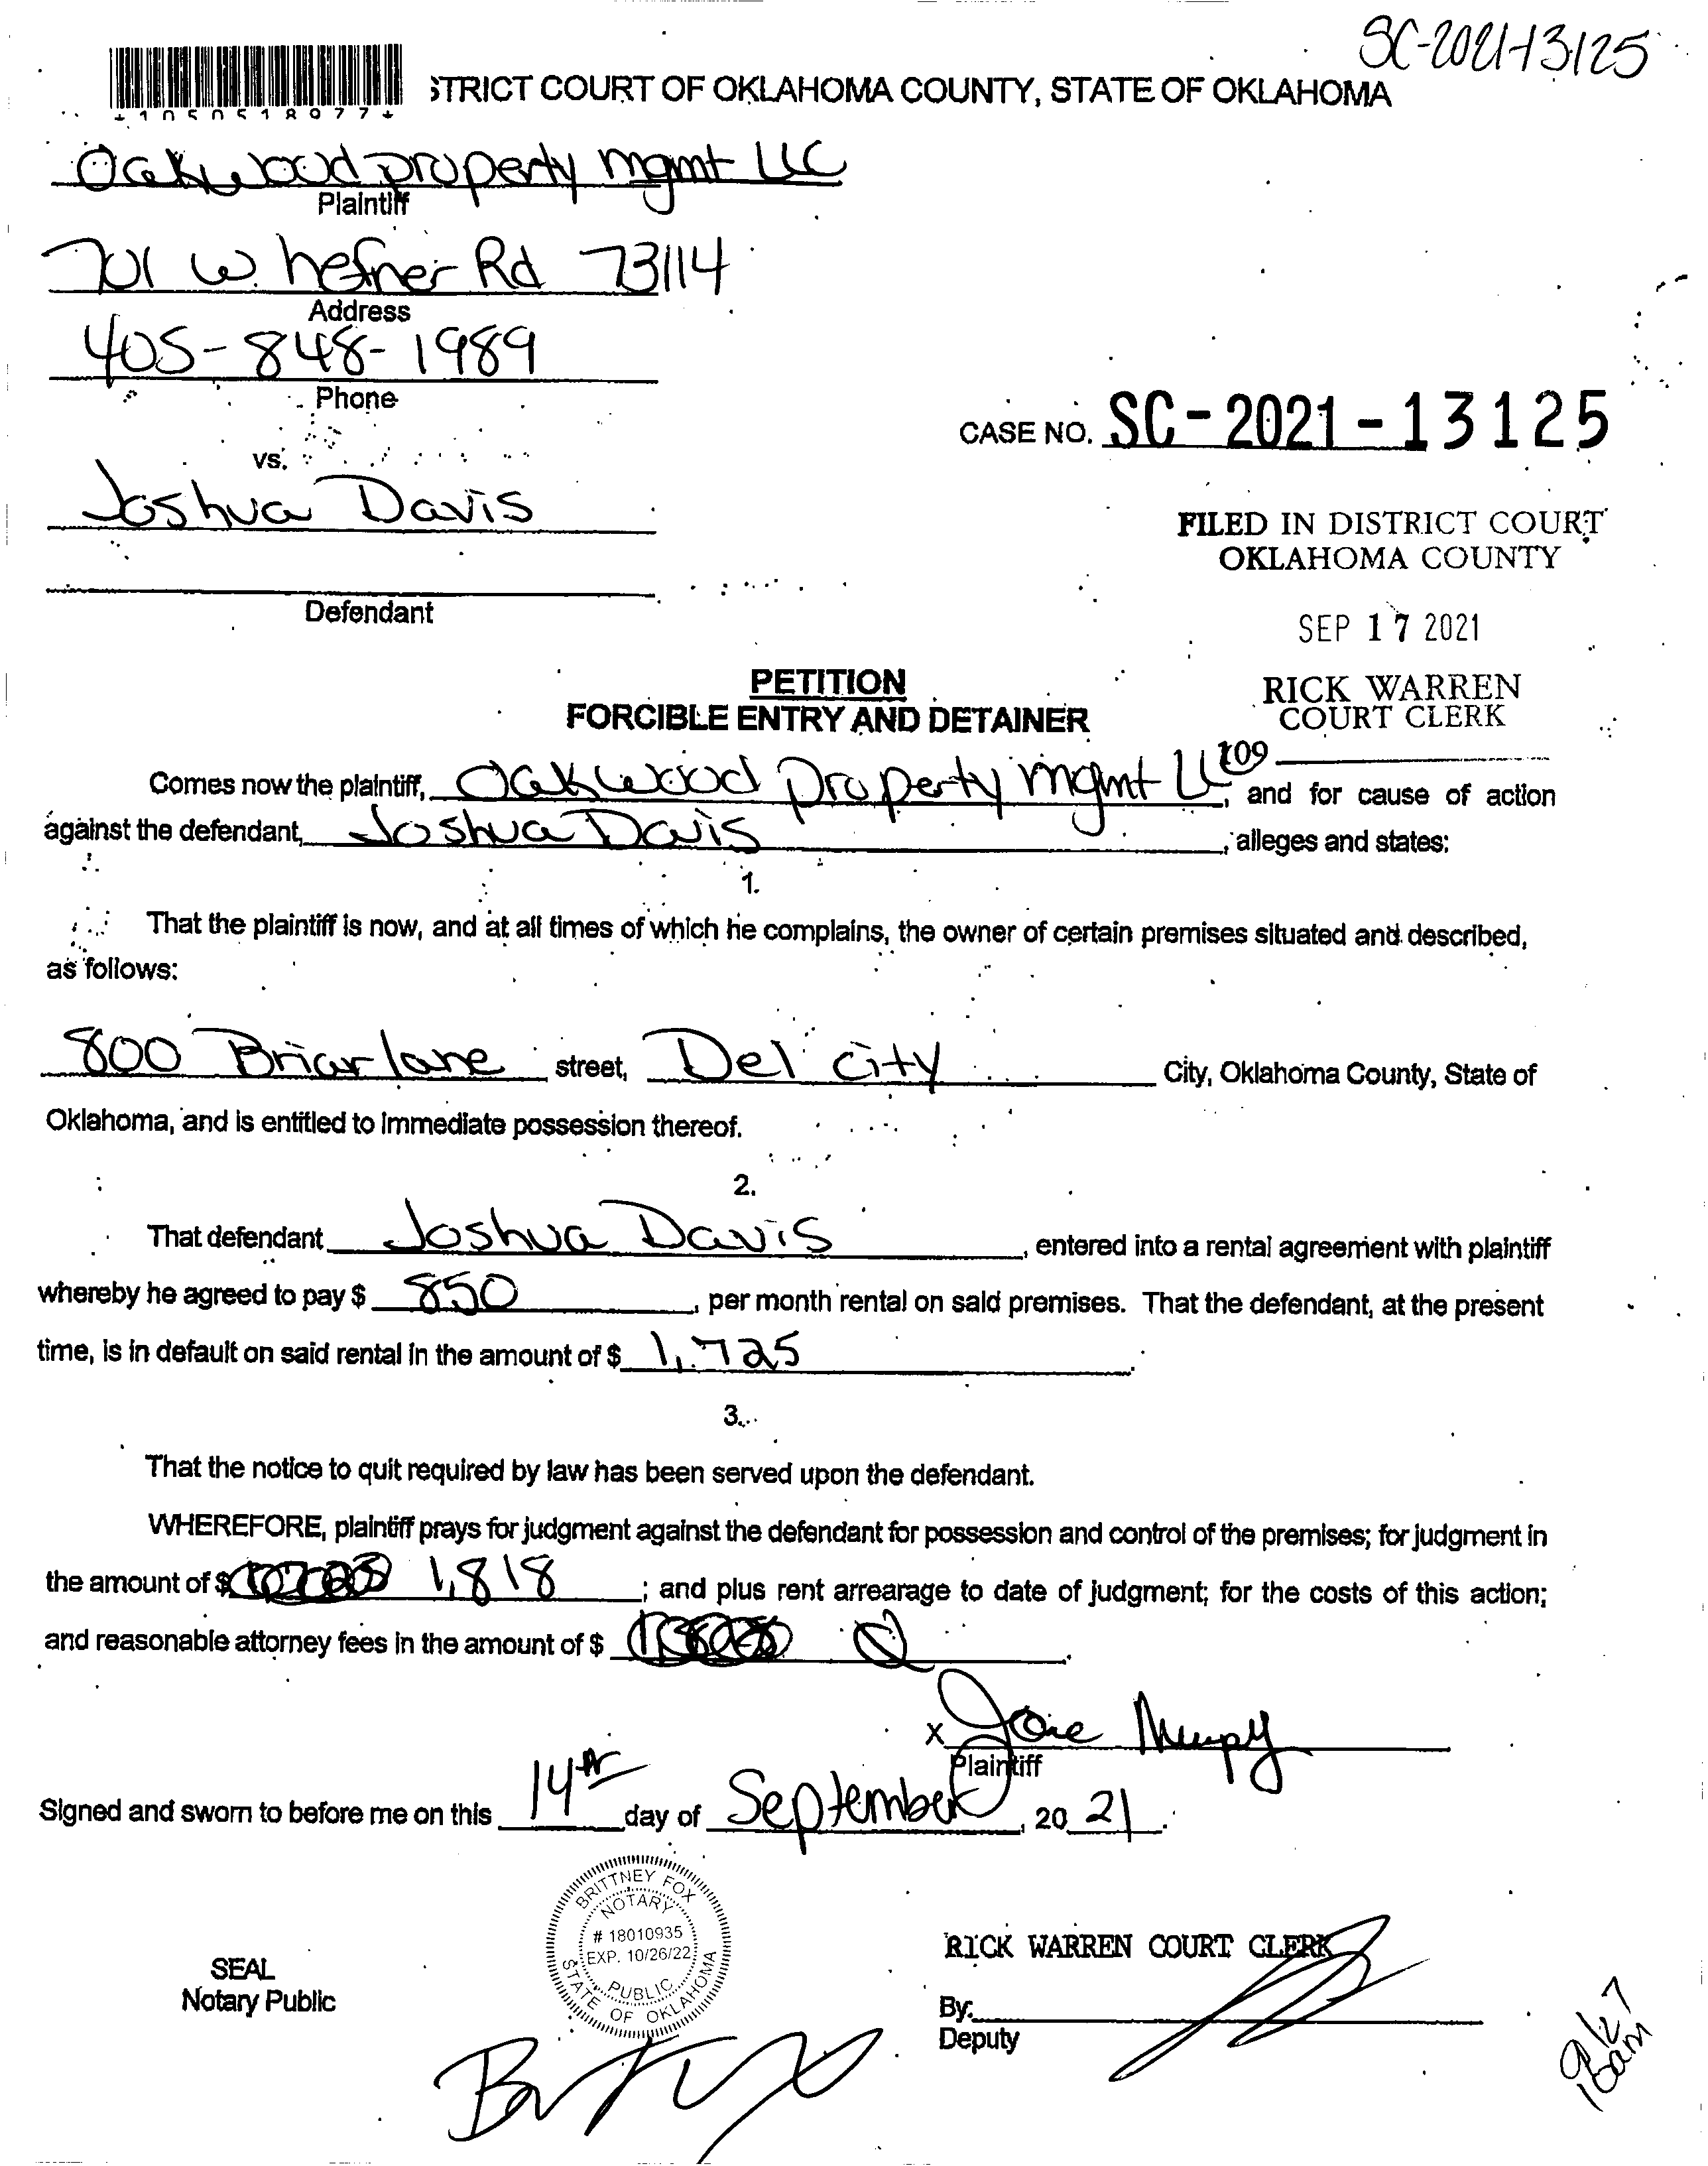 SC-2021-13125
STRICT COURT OF OKLAHOMA COUNTY, STATE OF OKLAHOMA
*1050518977*
Oakwood property mgmt LLC
Plaintiff
701 W. hefner Rd 73114
Address
405-848-1989
Phone
CASE NO. SC-2021-13125
vs.
Joshua Davis
FILED IN DISTRICT COURT
OKLAHOMA COUNTY
Defendant
SEP 17 2021
PETITION
RICK WARREN
FORCIBLE ENTRY AND DETAINER
COURT CLERK
109
Comes now the plaintiff, Oakwood Property mgmt LLC, and for cause of action
against the defendant, Joshua Davis, alleges and states:
1.
That the plaintiff is now, and at all times of which he complains, the owner of certain premises situated and described,
as follows:
800 Briarlane street, Del city City, Oklahoma County, State of
Oklahoma, and is entitled to immediate possession thereof.
2.
That defendant Joshua Davis, entered into a rental agreement with plaintiff
whereby he agreed to pay $ 850, per month rental on said premises. That the defendant, at the present
time, is in default on said rental in the amount of $ 1,725.
3.
That the notice to quit required by law has been served upon the defendant.
WHEREFORE, plaintiff prays for judgment against the defendant for possession and control of the premises; for judgment in
the amount of $ 1,818; and plus rent arrearage to date of judgment; for the costs of this action;
and reasonable attorney fees in the amount of $
X
Plaintiff
Signed and sworn to before me on this 14th day of September, 2021.
BRITTNEY FOX
NOTARY
# 18010935
EXP. 10/26/22
PUBLIC
STATE OF OKLAHOMA
RICK WARREN COURT CLERK
SEAL
Notary Public
By:
Deputy
9/27